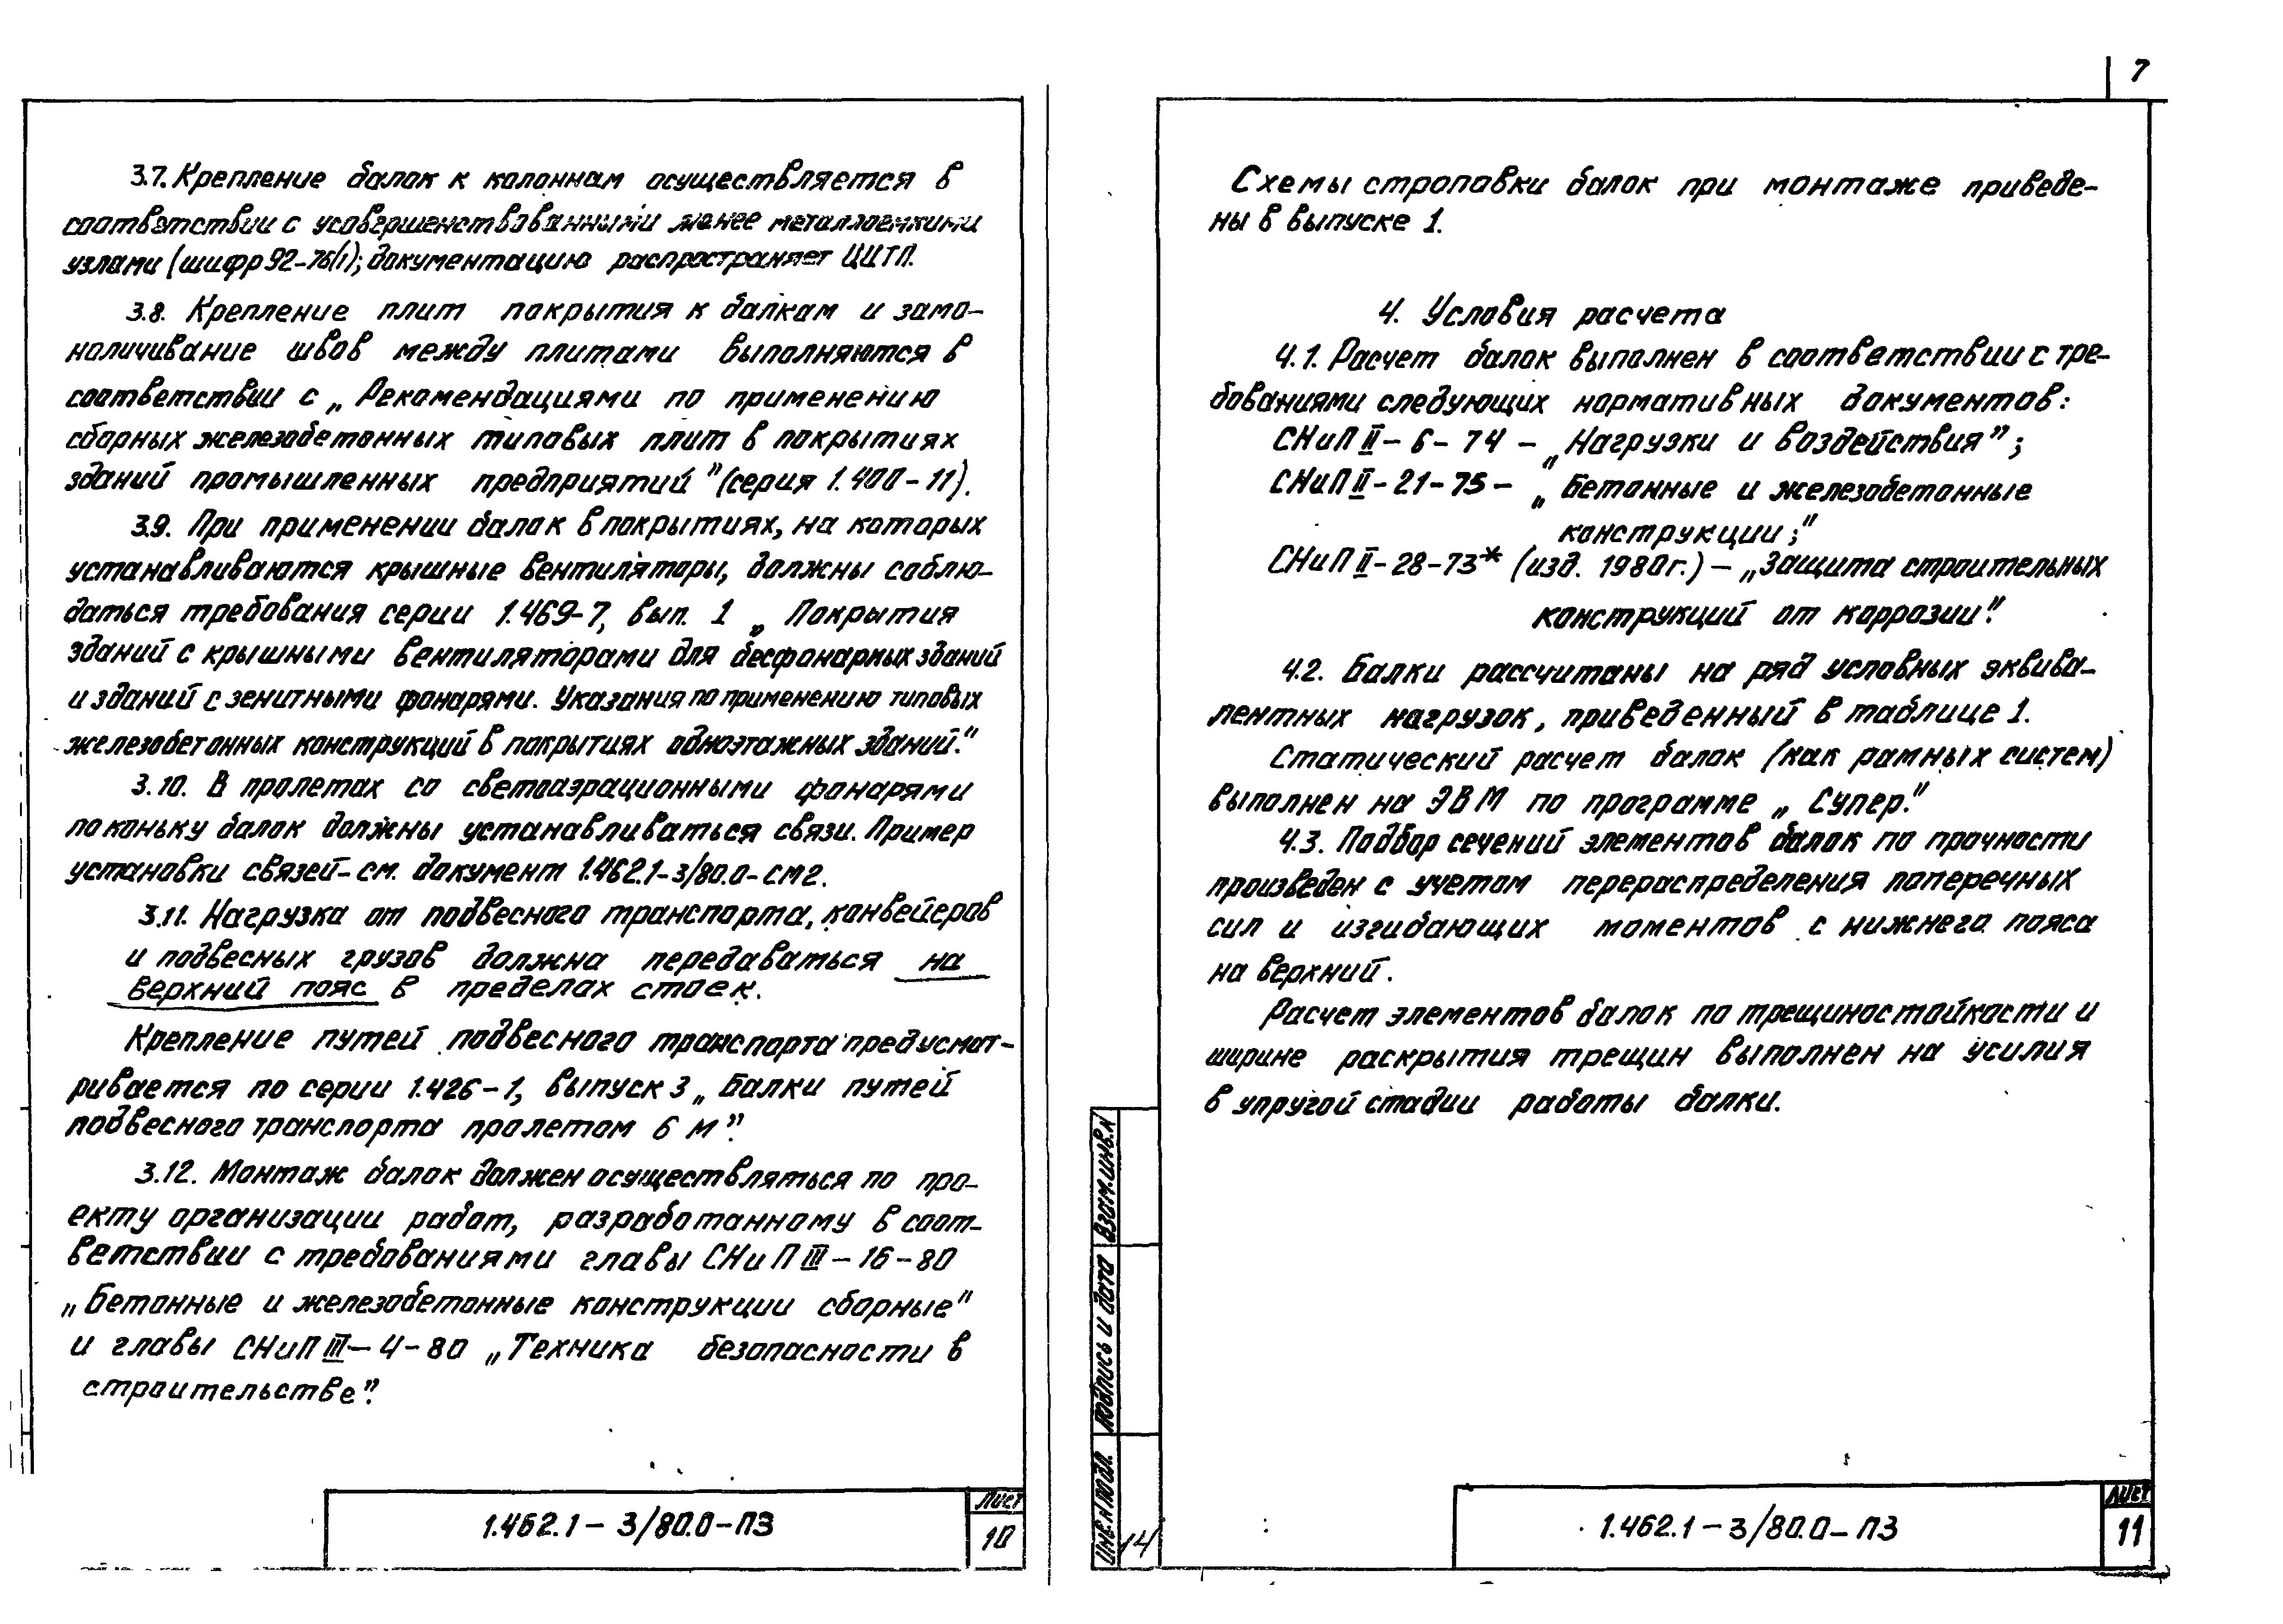 3.7. Крепление балок к колоннам осуществляется в
соответствии с усовершенствованными менее металлоемкими
узлами (шифр 92-76/1); документацию распространяет ЦИТП.
3.8. Крепление плит покрытия к балкам и замо-
ноличивание швов между плитами выполняются в
соответствии с „Рекомендациями по применению
сборных железобетонных типовых плит в покрытиях
зданий промышленных предприятий" (серия 1.400-11).
3.9. При применении балок в покрытиях, на которых
устанавливаются крышные вентиляторы, должны соблю-
даться требования серии 1.469-7, вып. 1 „Покрытия
зданий с крышными вентиляторами для бесфонарных зданий
и зданий с зенитными фонарями. Указания по применению типовых
железобетонных конструкций в покрытиях одноэтажных зданий."
3.10. В пролетах со светоаэрационными фонарями
по коньку балок должны устанавливаться связи. Пример
установки связей-см. документ 1.462.1-3/80.0-СМ2.
3.11. Нагрузка от подвесного транспорта, конвейеров
и подвесных грузов должна передаваться на
верхний пояс в пределах стоек.
Крепление путей подвесного транспорта предусмат-
ривается по серии 1.426-1, выпуск 3 „Балки путей
подвесного транспорта пролетом 6 м".
3.12. Монтаж балок должен осуществляться по про-
екту организации работ, разработанному в соот-
ветствии с требованиями главы СНиП III-16-80
„Бетонные и железобетонные конструкции сборные"
и главы СНиП III-4-80 „Техника безопасности в
строительстве".
1.462.1-3/80.0-ПЗ
Лист
10
7
Схемы строповки балок при монтаже приведе-
ны в выпуске 1.
4. Условия расчета
4.1. Расчет балок выполнен в соответствии с тре-
бованиями следующих нормативных документов:
СНиП II-6-74 - „Нагрузки и воздействия";
СНиП II-21-75 - „Бетонные и железобетонные
конструкции;"
СНиП II-28-73* (изд. 1980г.) - „Защита строительных
конструкций от коррозии".
4.2. Балки рассчитаны на ряд условных эквива-
лентных нагрузок, приведенный в таблице 1.
Статический расчет балок (как рамных систем)
выполнен на ЭВМ по программе „Супер."
4.3. Подбор сечений элементов балок по прочности
произведен с учетом перераспределения поперечных
сил и изгибающих моментов с нижнего пояса
на верхний.
Расчет элементов балок по трещиностойкости и
ширине раскрытия трещин выполнен на усилия
в упругой стадии работы балки.
Взам.инв.N
Подпись и дата
Инв.N подл.
14
1.462.1-3/80.0-ПЗ
Лист
11